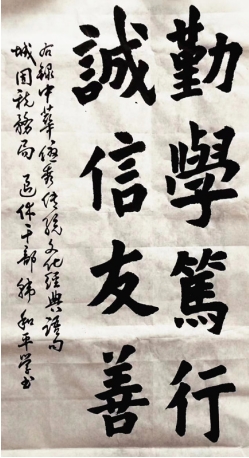 勤學篤行
誠信友善
右錄中華優秀傳統文化經典語句
城固税務局 退休干部 韩和平学书